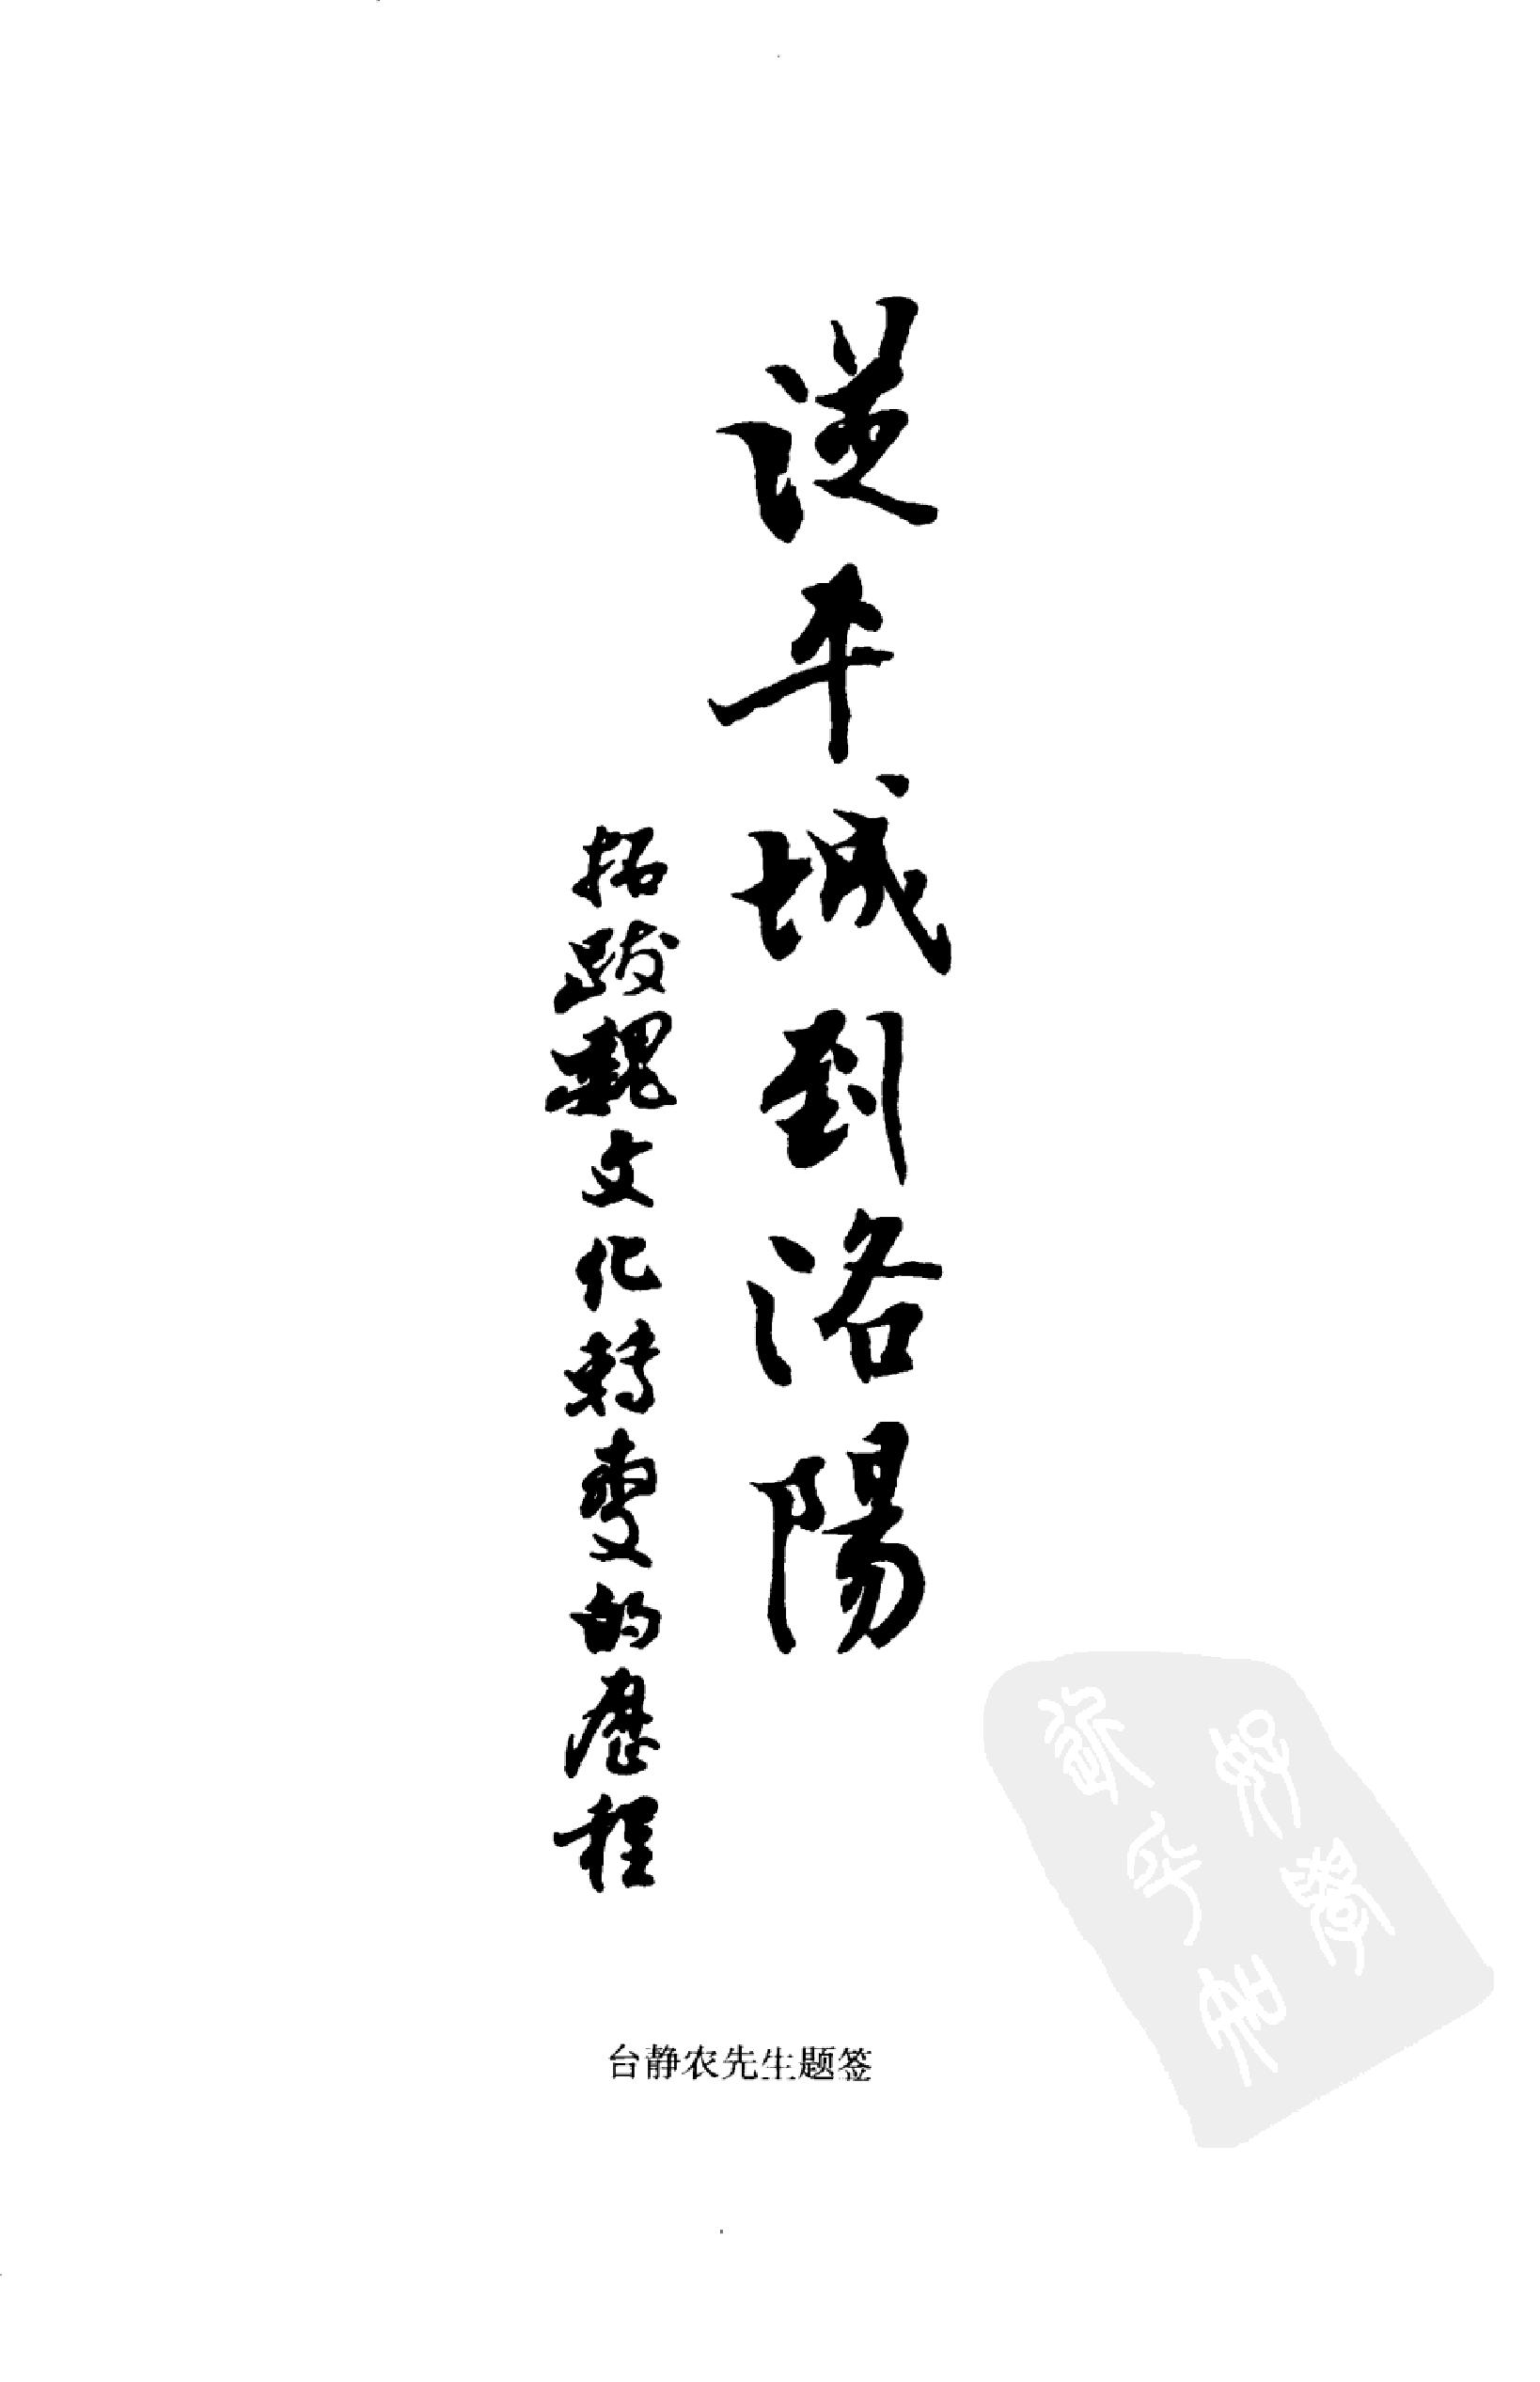 從平城到洛陽
拓跋魏文化轉變的歷程
台静农先生题签